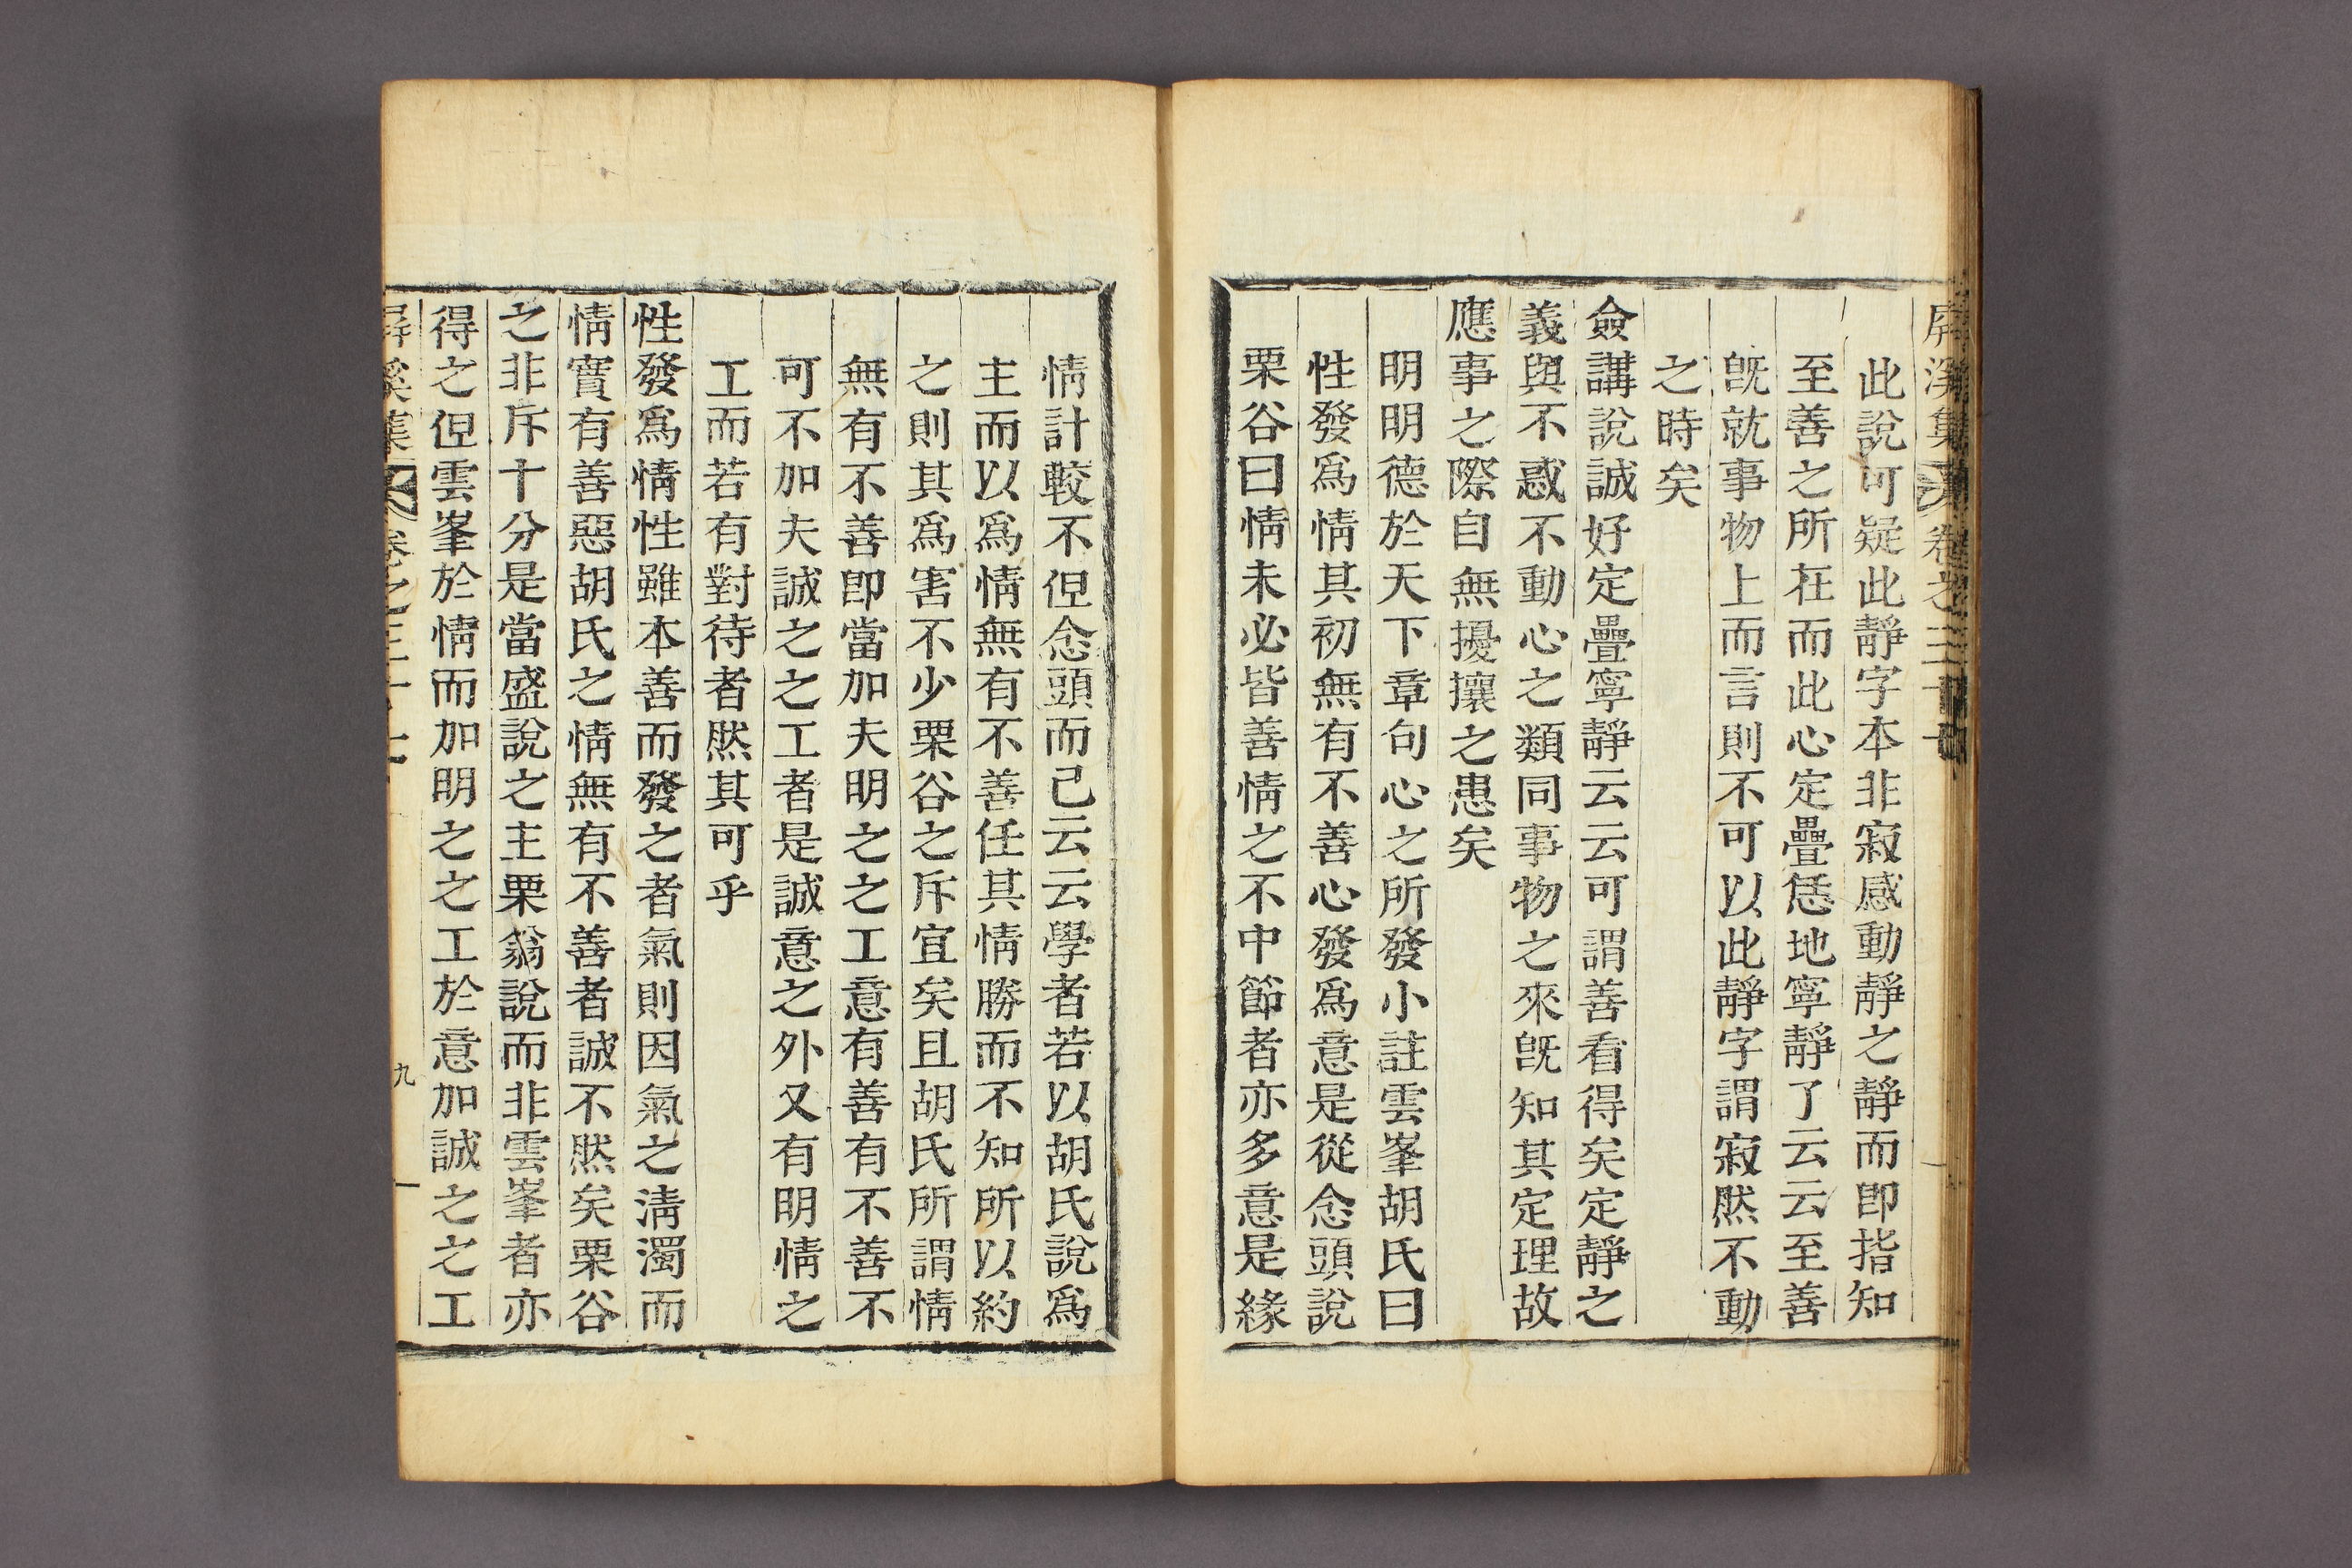 屛溪集 卷之三十七
此說可疑此靜字本非寂感動靜之靜而卽指知
至善之所在而此心定疊恁地寧靜了云云至善
旣就事物上而言則不可以此靜字謂寂然不動
之時矣
僉講說誠好定疊寧靜云云可謂善看得矣定靜之
義與不惑不動心之類同事物之來旣知其定理故
應事之際自無擾攘之患矣
明明德於天下章句心之所發小註雲峯胡氏曰
性發爲情其初無有不善心發爲意是從念頭說
栗谷曰情未必皆善情之不中節者亦多意是緣
情計較不但念頭而已云云學者若以胡氏說爲
主而以爲情無有不善任其情勝而不知所以約
之則其爲害不少栗谷之斥宜矣且胡氏所謂情
無有不善卽當加夫明之之工意有善有不善不
可不加夫誠之之工者是誠意之外又有明情之
工而若有對待者然其可乎
性發爲情性雖本善而發之者氣則因氣之淸濁而
情實有善惡胡氏之情無有不善者誠不然矣栗谷
之非斥十分是當盛說之主栗翁說而非雲峯者亦
得之但雲峯於情而加明之之工於意加誠之之工
屛溪集 卷之三十七 九